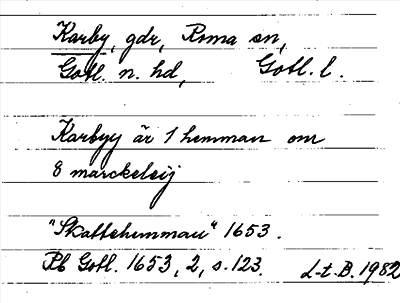 Karby, gdr, Roma sn,
Gotl. n. hd, Gotl. l.
Karbyy är 1 hemman om
8 marckeleij
"Skattehemman" 1653.
Rb Gotl. 1653, 2, s. 123. L-t. B. 1982